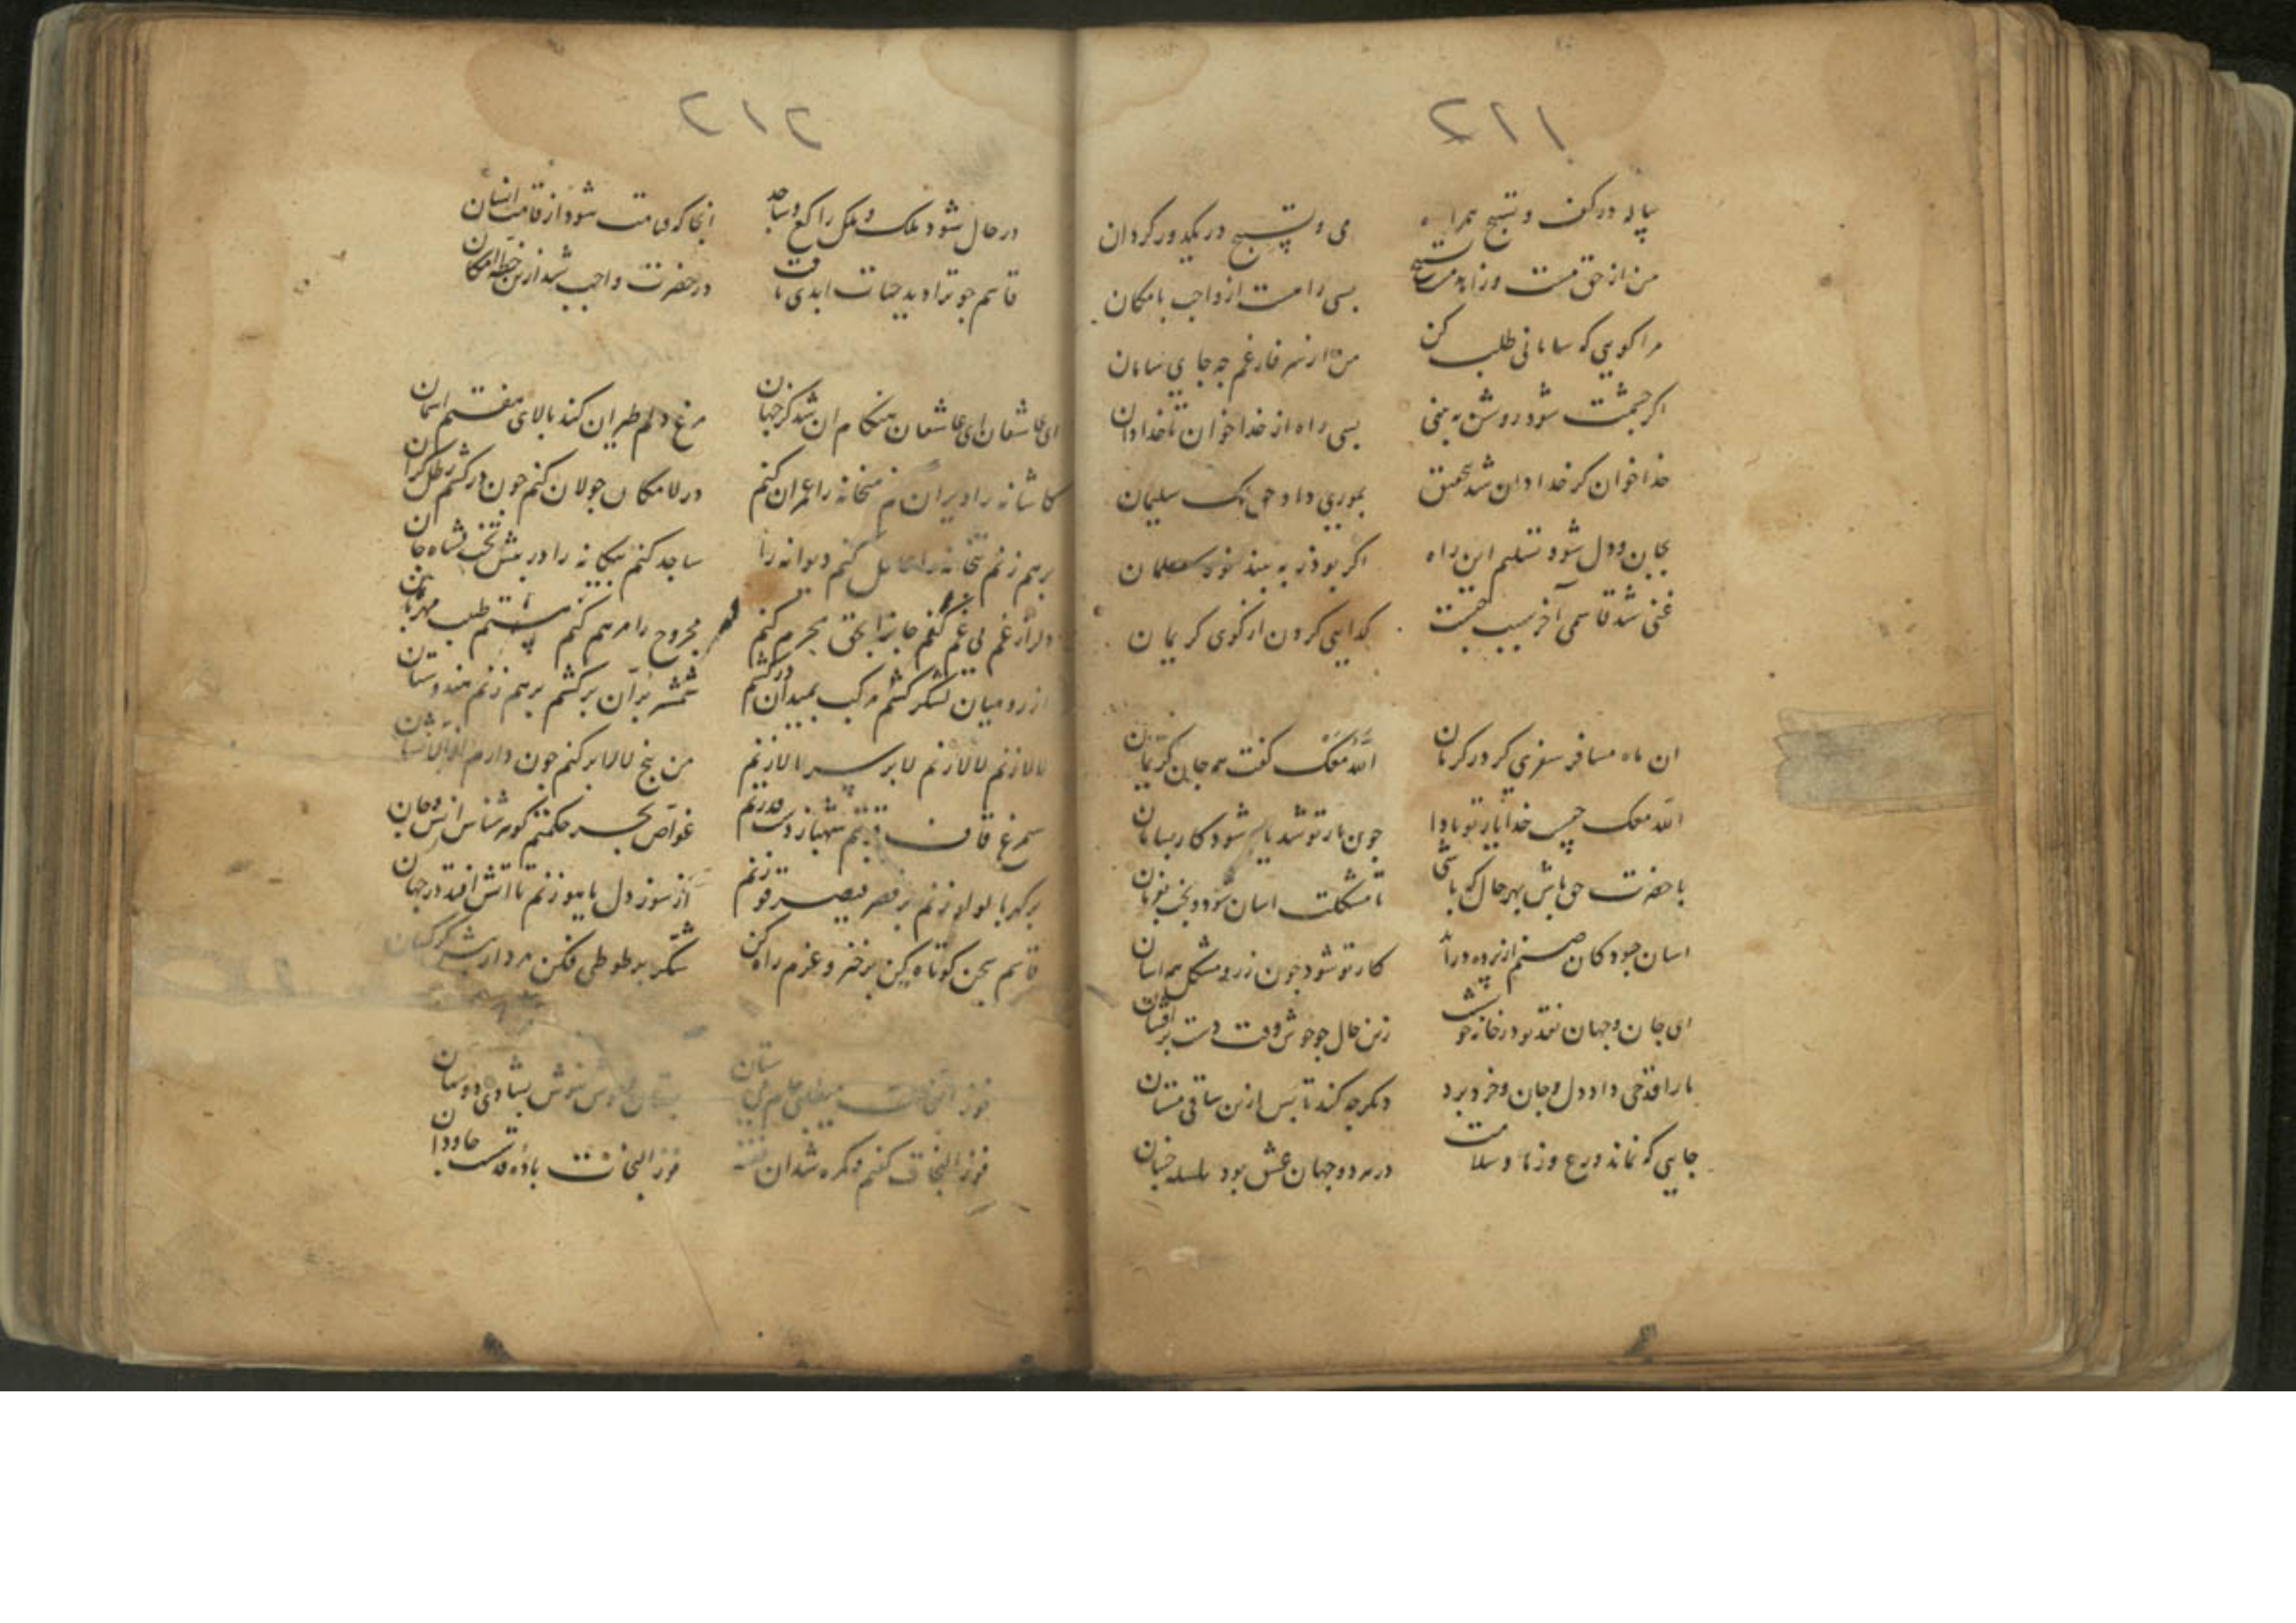 ۲۱۱
پیاله در کف و تسبیح همراه
می و تسبیح در یکدور گردان
من از حق مست و زاهد مست تسبیح
بسی راهست از واجب بامکان
مرا کویی که سامانی طلب کن
من از سر فارغم چه جای سامان
اکر چشمت شود روشن به بینی
بسی راه از خدا خوان تا خدادان
خدا خوان کر خدادان شد بتحقیق
بموری داد حق ملک سلیمان
بجان و دل شود تسلیم این راه
اکر بوذر به بیند نور سلمان
غنی شد قاسمی آخر بسببت
کدایی کردن از کوی کریمان
ان ماه مسافر سفری کرد ز کرمان
الله معک کفت همه جان کریمان
الله معک چیست خدا یار تو بادا
چون یار تو شد یار شود کار بسامان
با حضرت حق باش بهر حال که باشی
تا مشکلت اسان شود و بخت بفرمان
اسان چبود کان صنم از پرده درآید
کار تو شود چون زر و مشکل همه اسان
ای جان و جهان نقد تو در خانه خویش
زین حال چو خوش وقت دست برافشان
ما را قدحی داد دل و جان و خرد برد
دیکر چه کند تا پس ازین ساقی مستان
جایی که نماند ورع و زهد و سلامت
در هر دو جهان عشق بود سلسله جنبان
۲۱۲
در حال شود ملک و ملک راکع و ساجد
انجا که قیامت شود از قامت انسان
قاسم چو ترا دید حیات ابدی یافت
در حضرت واجب شد ازین خطه امکان
ای عاشقان ای عاشقان هنکام ان شد کز جهان
مرغ دلم طیران کند بالای هفتم اسمان
کاشانه را ویران کنم میخانه را عمران کنم
در لامکان جولان کنم چون درکشم رطل کران
برهم زنم بتخانه را عاقل کنم دیوانه را
ساجد کنم بیکانه را در پیش تخت شاه جان
دلرا ز غم بی غم کنم جانرا بحق محرم کنم
مجروح را مرهم کنم هستم طبیب مهربان
از رومیان لشکر کشم مرکب بمیدان درکشم
شمشیر بران برکشم برهم زنم هندوستان
لالا زنم لالا زنم لا بر سر بالا زنم
من بیخ لالا برکنم چون دارم از الا نشان
سیمرغ قاف قربتم شهباز دست قدرتم
غواص بحر حکمتم کوهر شناس انس و جان
بر کهربا لولو زنم بر قصر قیصر قو زنم
از سوز دل یاهو زنم تا اتش افتد در جهان
قاسم سخن کوتاه کن برخیز و عزم راه کن
شکر بر طوطی فکن مردار پیش کرکسان
فوز النجات کنم وکره شدان
فوز النجات باده قدست جاودان